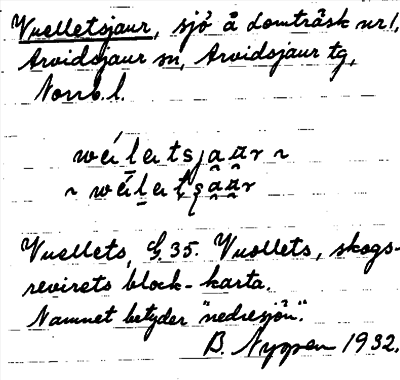 Vuelletsjaur, sjö å Lomträsk nr 1,
Arvidsjaur sn, Arvidsjaur tg,
Norrb. l.
Vuellets, G. 35. Vuollets, skogs-
revirets block-karta.
Namnet betyder "nedresjön".
B. Nyman 1932.